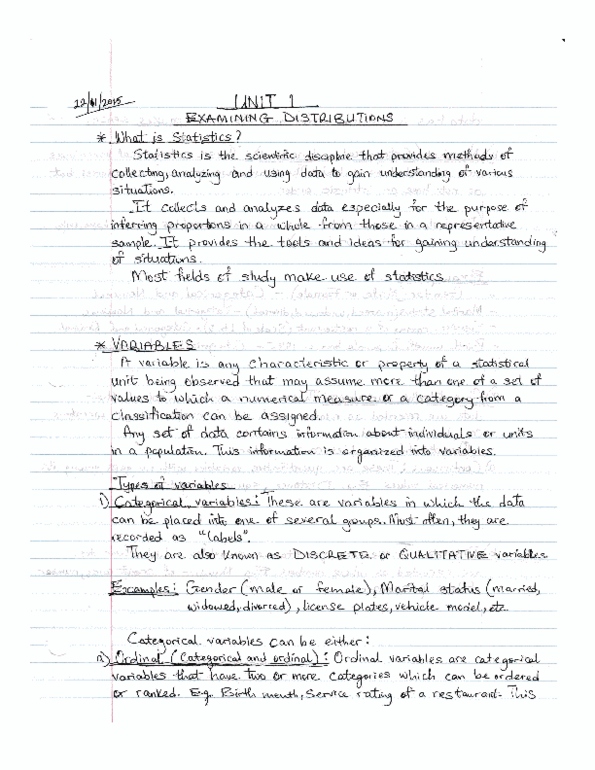 22/01/2015
UNIT 1
EXAMINING DISTRIBUTIONS
* What is Statistics?
Statistics is the scientific discipline that provides methods of
collecting, analyzing and using data to gain understanding of various
situations.
It collects and analyzes data especially for the purpose of
inferring proportions in a whole from those in a representative
sample. It provides the tools and ideas for gaining understanding
of situations.
Most fields of study make use of statistics
* VARIABLES
A variable is any characteristic or property of a statistical
unit being observed that may assume more than one of a set of
values to which a numerical measure or a category from a
classification can be assigned.
Any set of data contains information about individuals or units
in a population. This information is organized into variables.
Types of variables
1) Categorical variables: These are variables in which the data
can be placed into one of several groups. Most often, they are
recorded as "labels".
They are also known as DISCRETE or QUALITATIVE variables
Examples: Gender (male or female), Marital status (married,
widowed, divorced), license plates, vehicle model, etc
Categorical variables can be either:
a) Ordinal (Categorical and ordinal): Ordinal variables are categorical
variables that have two or more categories which can be ordered
or ranked. E.g. Birth month, service rating of a restaurant. This